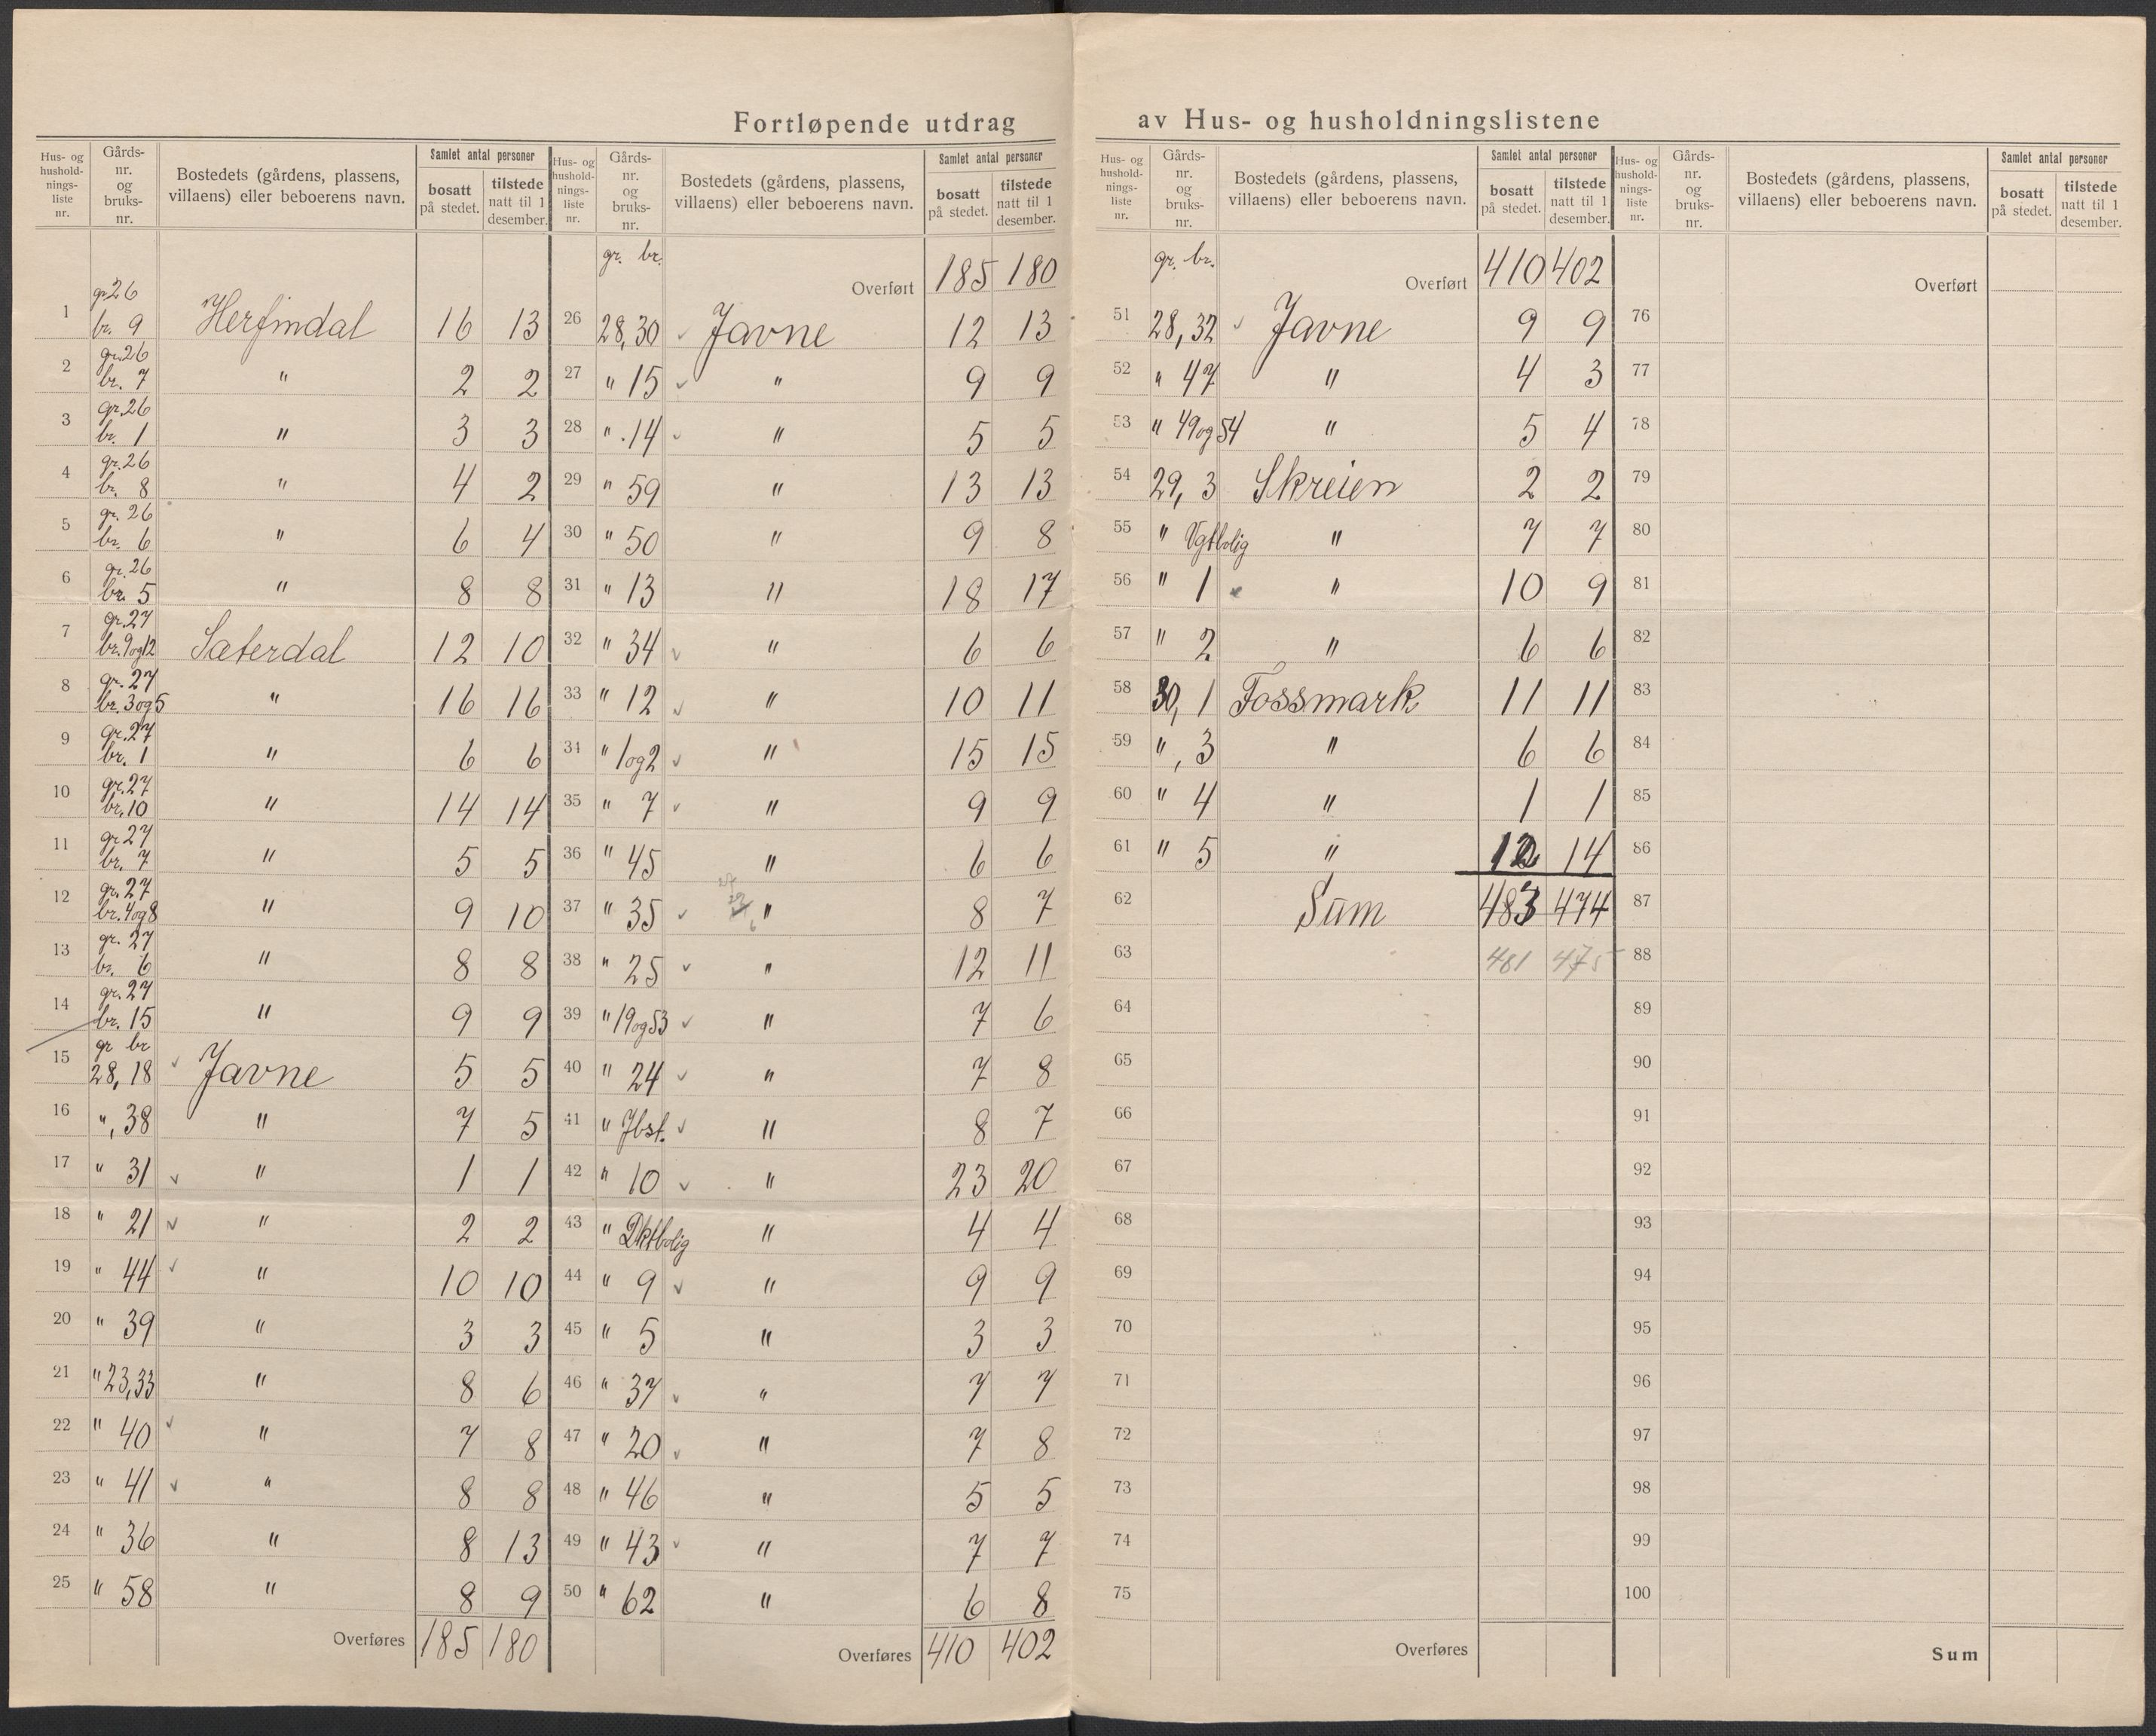 Fortløpende utdrag av Hus- og husholdningslistene
Hus- og husholdnings- liste nr. | Gårds- nr. og bruks- nr. | Bostedets (gårdens, plassens, villaens) eller beboerens navn. | Samlet antal personer | bosatt på stedet. | tilstede natt til 1 desember.
1 gr. 26 br. 9 Herfindal 16 13
2 gr. 26 br. 7 " 2 2
3 gr. 26 br. 1 " 3 3
4 gr. 26 br. 8 " 4 2
5 gr. 26 br. 6 " 6 4
6 gr. 26 br. 5 " 8 8
7 gr. 27 br. 9 og 12 Sæterdal 12 10
8 gr. 27 br. 3 og 5 " 16 16
9 gr. 27 br. 1 " 6 6
10 gr. 27 br. 10 " 14 14
11 gr 27 br. 7 " 5 5
12 gr. 27 br. 4 og 8 " 9 10
13 gr. 27 br. 6 " 8 8
14 gr. 27 br. 15 " 9 9
15 gr br 28, 18 ✓ Javne 5 5
16 ", 38 " 7 5
17 " 31 ✓ " 1 1
18 " 21 ✓ " 2 2
19 " 44 ✓ " 10 10
20 " 39 " 3 3
21 " 23,33 " 8 6
22 " 40 ✓ " 7 8
23 " 41 ✓ " 8 8
24 " 36 " 8 13
25 " 58 " 8 9
Overføres 185 180
Hus- og husholdnings- liste nr. | Gårds- nr. og bruks- nr. | Bostedets (gårdens, plassens, villaens) eller beboerens navn. | Samlet antal personer | bosatt på stedet. | tilstede natt til 1 desember.
gr. br. Overført 185 180
26 28,30 ✓ Javne 12 13
27 " 15 ✓ " 9 9
28 " .14 ✓ " 5 5
29 " 59 " 13 13
30 " 50 " 9 8
31 " 13 " 18 17
32 " 34 ✓ " 6 6
33 " 12 ✓ " 10 11
34 " 1 og 2 ✓ " 15 15
35 " 7 ✓ " 9 9
36 " 45 " 6 6
37 " 35 ✓ " 8 7
38 " 25 ✓ " 12 11
39 " 19 og 53 ✓ " 7 6
40 " 24 ✓ " 7 8
41 " Jbst. ✓ " 8 7
42 " 10 ✓ " 23 20
43 " Dktbolig " 4 4
44 " 9 ✓ " 9 9
45 " 5 " 3 3
46 " 37 ✓ " 7 7
47 " 20 ✓ " 7 8
48 " 46 " 5 5
49 " 43 ✓ " 7 7
50 " 62 " 6 8
Overføres 410 402
Hus- og husholdnings- liste nr. | Gårds- nr. og bruks- nr. | Bostedets (gårdens, plassens, villaens) eller beboerens navn. | Samlet antal personer | bosatt på stedet. | tilstede natt til 1 desember.
gr. br. Overført 410 402
51 28,32 ✓ Javne 9 9
52 " 47 " 4 3
53 " 49 og 54 " 5 4
54 29, 3 Skreien 2 2
55 " Vgtbolig " 7 7
56 " 1 ✓ " 10 9
57 " 2 " 6 6
58 30, 1 Fossmark 11 11
59 ", 3 " 6 6
60 " 4 " 1 1
61 " 5 " 12 14
62 Sum 483 474
63 481 475
64
65
66
67
68
69
70
71
72
73
74
75
Overføres
Hus- og husholdnings- liste nr. | Gårds- nr. og bruks- nr. | Bostedets (gårdens, plassens, villaens) eller beboerens navn. | Samlet antal personer | bosatt på stedet. | tilstede natt til 1 desember.
Overført
76
77
78
79
80
81
82
83
84
85
86
87
88
89
90
91
92
93
94
95
96
97
98
99
100
Sum